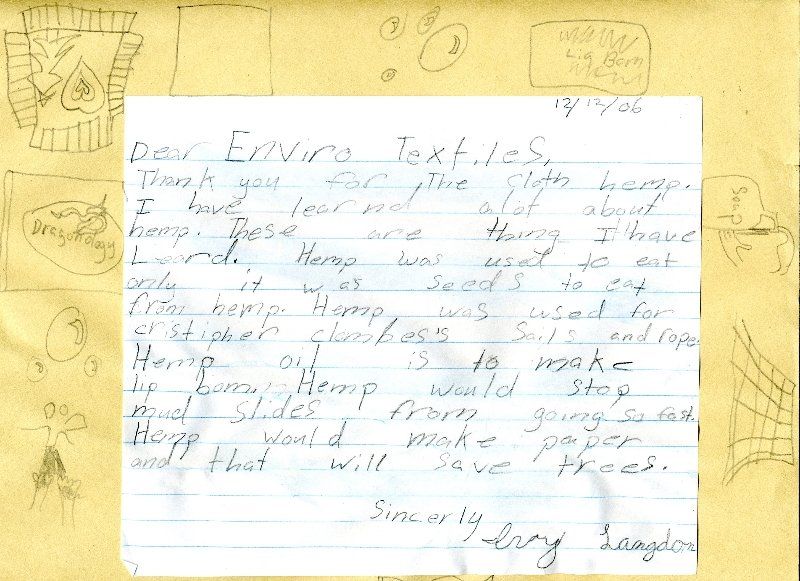 Lip Bom
12/12/06
Dear Enviro Textiles,
Thank you for The cloth hemp.
I have learnd alot about
hemp. These are thing I have
Leard. Hemp was used to eat
only it was seeds to eat
from hemp. Hemp was used for
cristipher clombes's sails and rope.
Hemp oil is to make
lip bom. Hemp would stop
mud slides from going so fast.
Hemp would make paper
and that will save trees.
Sincerly
Langdon
Dragonology
Soap